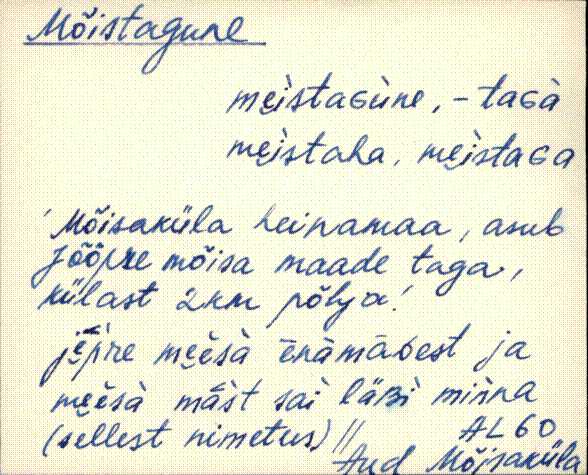 Mõistagune
mẹìstaGùne, - taGà
mẹìstaha, mẹìstaGa
'Mõisaküla heinamaa, asub
Jõõpre mõisa maade taga,
külast 2km põhja.'
jẹ̄pre mẹèsà ēnämāGest ja
mẹèsà māst sai läBì minna
(sellest nimetus) //
AL 60
Aud Mõisaküla